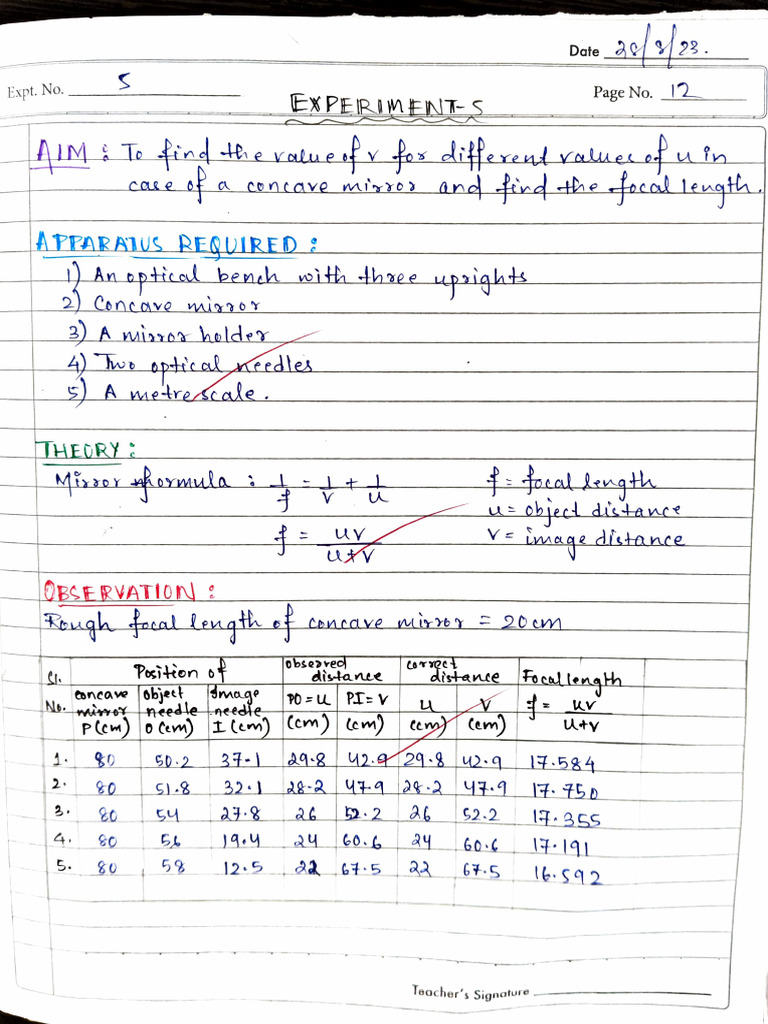 Date 28/8/23.
Expt. No. 5
Page No. 12
EXPERIMENT-5
AIM : To find the value of v for different values of u in
case of a concave mirror and find the focal length.
APPARATUS REQUIRED :
1) An optical bench with three uprights
2) Concave mirror
3) A mirror holder
4) Two optical needles
5) A metre scale.
THEORY :
Mirror formula : 1/f = 1/v + 1/u f = focal length
u = object distance
f = uv/u+v v = image distance
OBSERVATION :
Rough focal length of concave mirror = 20cm
Sl. No. Position of observed distance correct distance Focal length
concave mirror P(cm) object needle O(cm) Image needle I(cm) PO = u (cm) PI = v (cm) u (cm) v (cm) f = uv/u+v
1. 80 50.2 37.1 29.8 42.9 29.8 42.9 17.584
2. 80 51.8 32.1 28.2 47.9 28.2 47.9 17.750
3. 80 54 27.8 26 52.2 26 52.2 17.355
4. 80 56 19.4 24 60.6 24 60.6 17.191
5. 80 58 12.5 22 67.5 22 67.5 16.592
Teacher's Signature